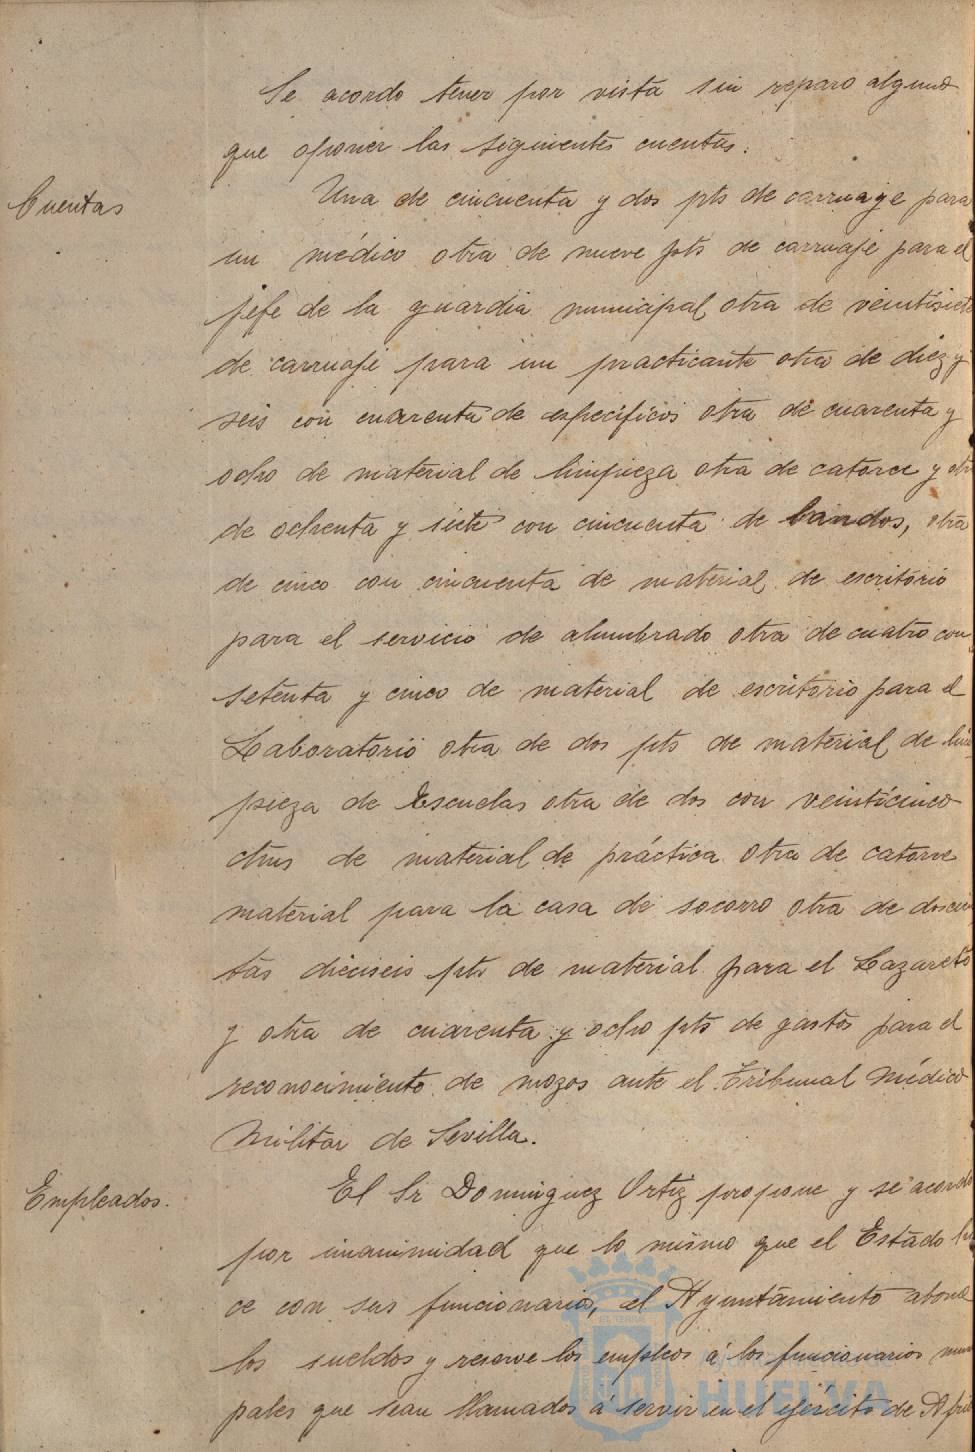 Se acordo tener por vista sin reparo alguno
que oponer las siguientes cuentas.
Cuentas
Una de cincuenta y dos pts de carruage para
un médico otra de nueve pts de carruaje para el
jefe de la guardia municipal otra de veintisiete
de carruaje para un practicante otra de diez y
seis con cuarenta de especificos otra de cuarenta y
ocho de material de limpieza otra de catorce y otra
de ochenta y siete con cincuenta de bandos, otra
de cinco con cincuenta de material de escritorio
para el servicio de alumbrado otra de cuatro con
setenta y cinco de material de escritorio para el
Laboratorio otra de dos pts de material de lim
pieza de Escuelas otra de dos con veinticinco
ctms de material de práctica otra de catorce
material para la casa de socorro otra de doscien
tas dieciseis pts de material para el Lazareto
y otra de cuarenta y ocho pts de gastos para el
reconocimiento de mozos ante el Tribunal Médico
Militar de Sevilla.
Empleados.
El Sr Dominguez Ortiz propone y se acordo
por unanimidad que lo mismo que el Estado ha
ce con sus funcionarios, el Ayuntamiento abone
los sueldos y reserve los empleos á los funcionarios muni
pales que sean llamados á servir en el ejército de Afri
HUELVA